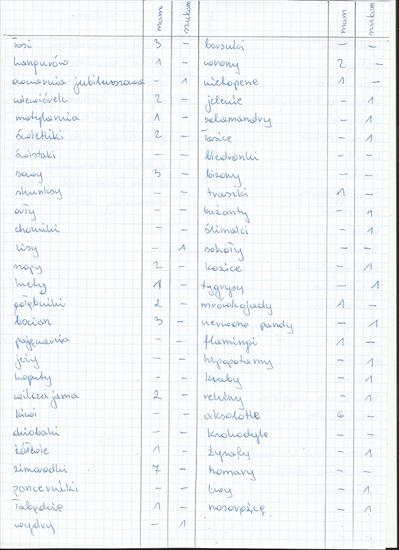 mam szukam mam szukam
łosi 3 - borsuki - -
kangurów 1 - wrony 2 -
jubileuszowa - 1 nietoperze 1 -
wiewiórek 2 - jelenie - 1
motylarnia 1 - salamandry - 1
świetliki 2 - łasice - 1
świstaki - - biedronki - -
sowy 3 - bizony - -
skunksy - - traszki 1 -
orły - - bażanty - 1
chomiki - - ślimaki - 1
lisy - 1 sokoły - -
szopy 2 - kozice - 1
1 - tygrysy - 1
gołębniki 2 - mrówkojady 1 -
bocian 3 - czerwone pandy - 1
- - flamingi 1 -
jeży - - hipopotamy - 1
koguty - - kraby - 1
wilcza jama 2 - rekiny - 1
kiwi - - aksolotle 6 -
dziobaki - - krokodyle - -
żółwie 1 - żyrafy - 1
zimorodki 7 - homary - -
pancerniki - - lwy - 1
łabędzie 1 - nosorożce - 1
wydry - 1